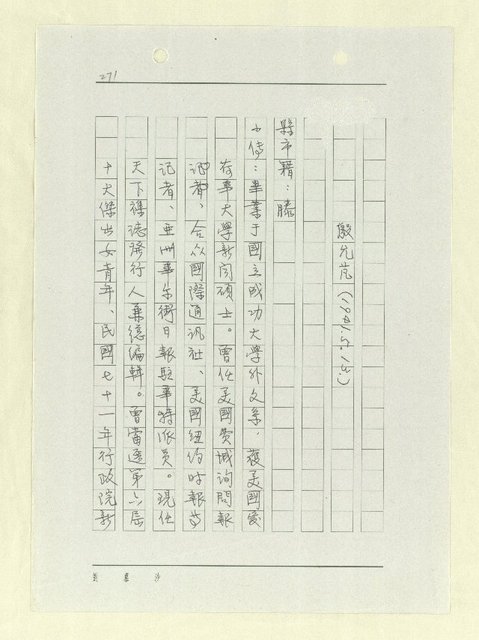 271
殷允芃(1941.5.15)
縣市籍：滕
小傳：畢業于國立成功大學外文系，獲美國愛
荷華大學新聞碩士。曾任美國費城詢問報
記者、合众國際通訊社、美國紐約时報等
記者、亚洲華尔街日報駐華特派員。現任
天下雜誌發行人兼總編輯。曾當選第六屆
十大傑出女青年、民國七十一年行政院新